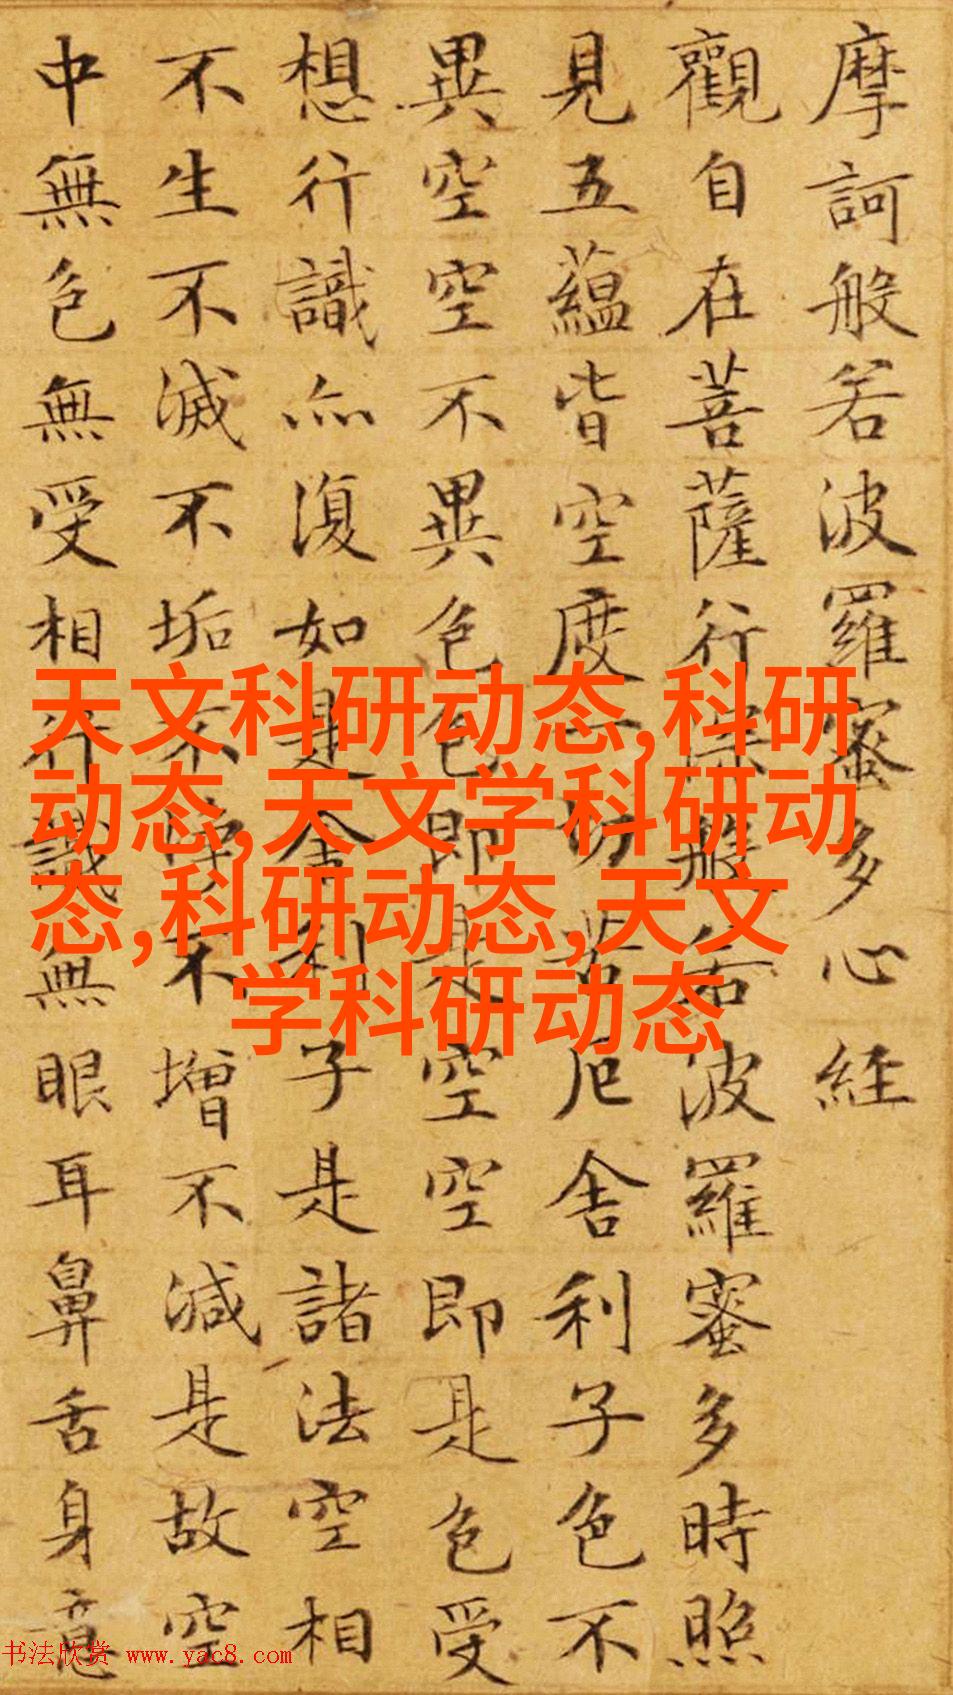 摩訶般若波羅蜜多心經
觀自在菩薩行深般若波羅蜜多時照
見五蘊皆空度一切苦厄舍利子色不
異空空不異色色即是空空即是色受
想行識亦復如是舍利子是諸法空相
不生不滅不垢不淨不增不減是故空
中無色無受相行識無眼耳鼻舌身意
天文科研动态,科研
动态,天文学科研动
态,科研动态,天文
学科研动态
书法欣赏 www.yac8.com